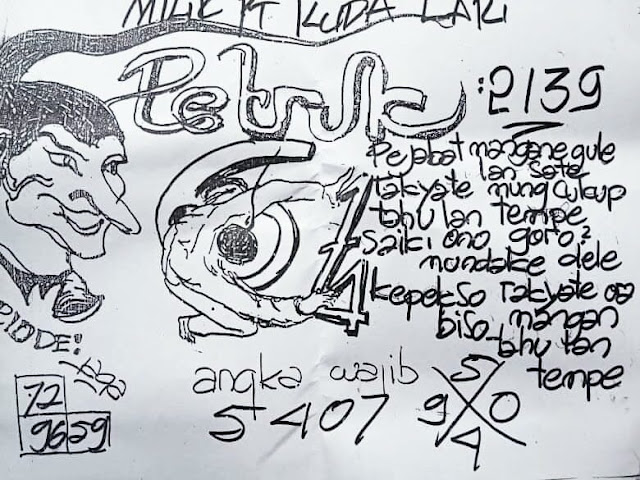 MILIK PT KUDA LARI
Petruk :2139
Pejabat mangane gule
lan sate
rakyate mung cukup
tahu lan tempe
saiki ono goro2
mundake dele
kepekso rakyate ora
biso mangan
tahu lan
tempe
PIODE:
72
9659
angka wajib
5407
5
9 0
4